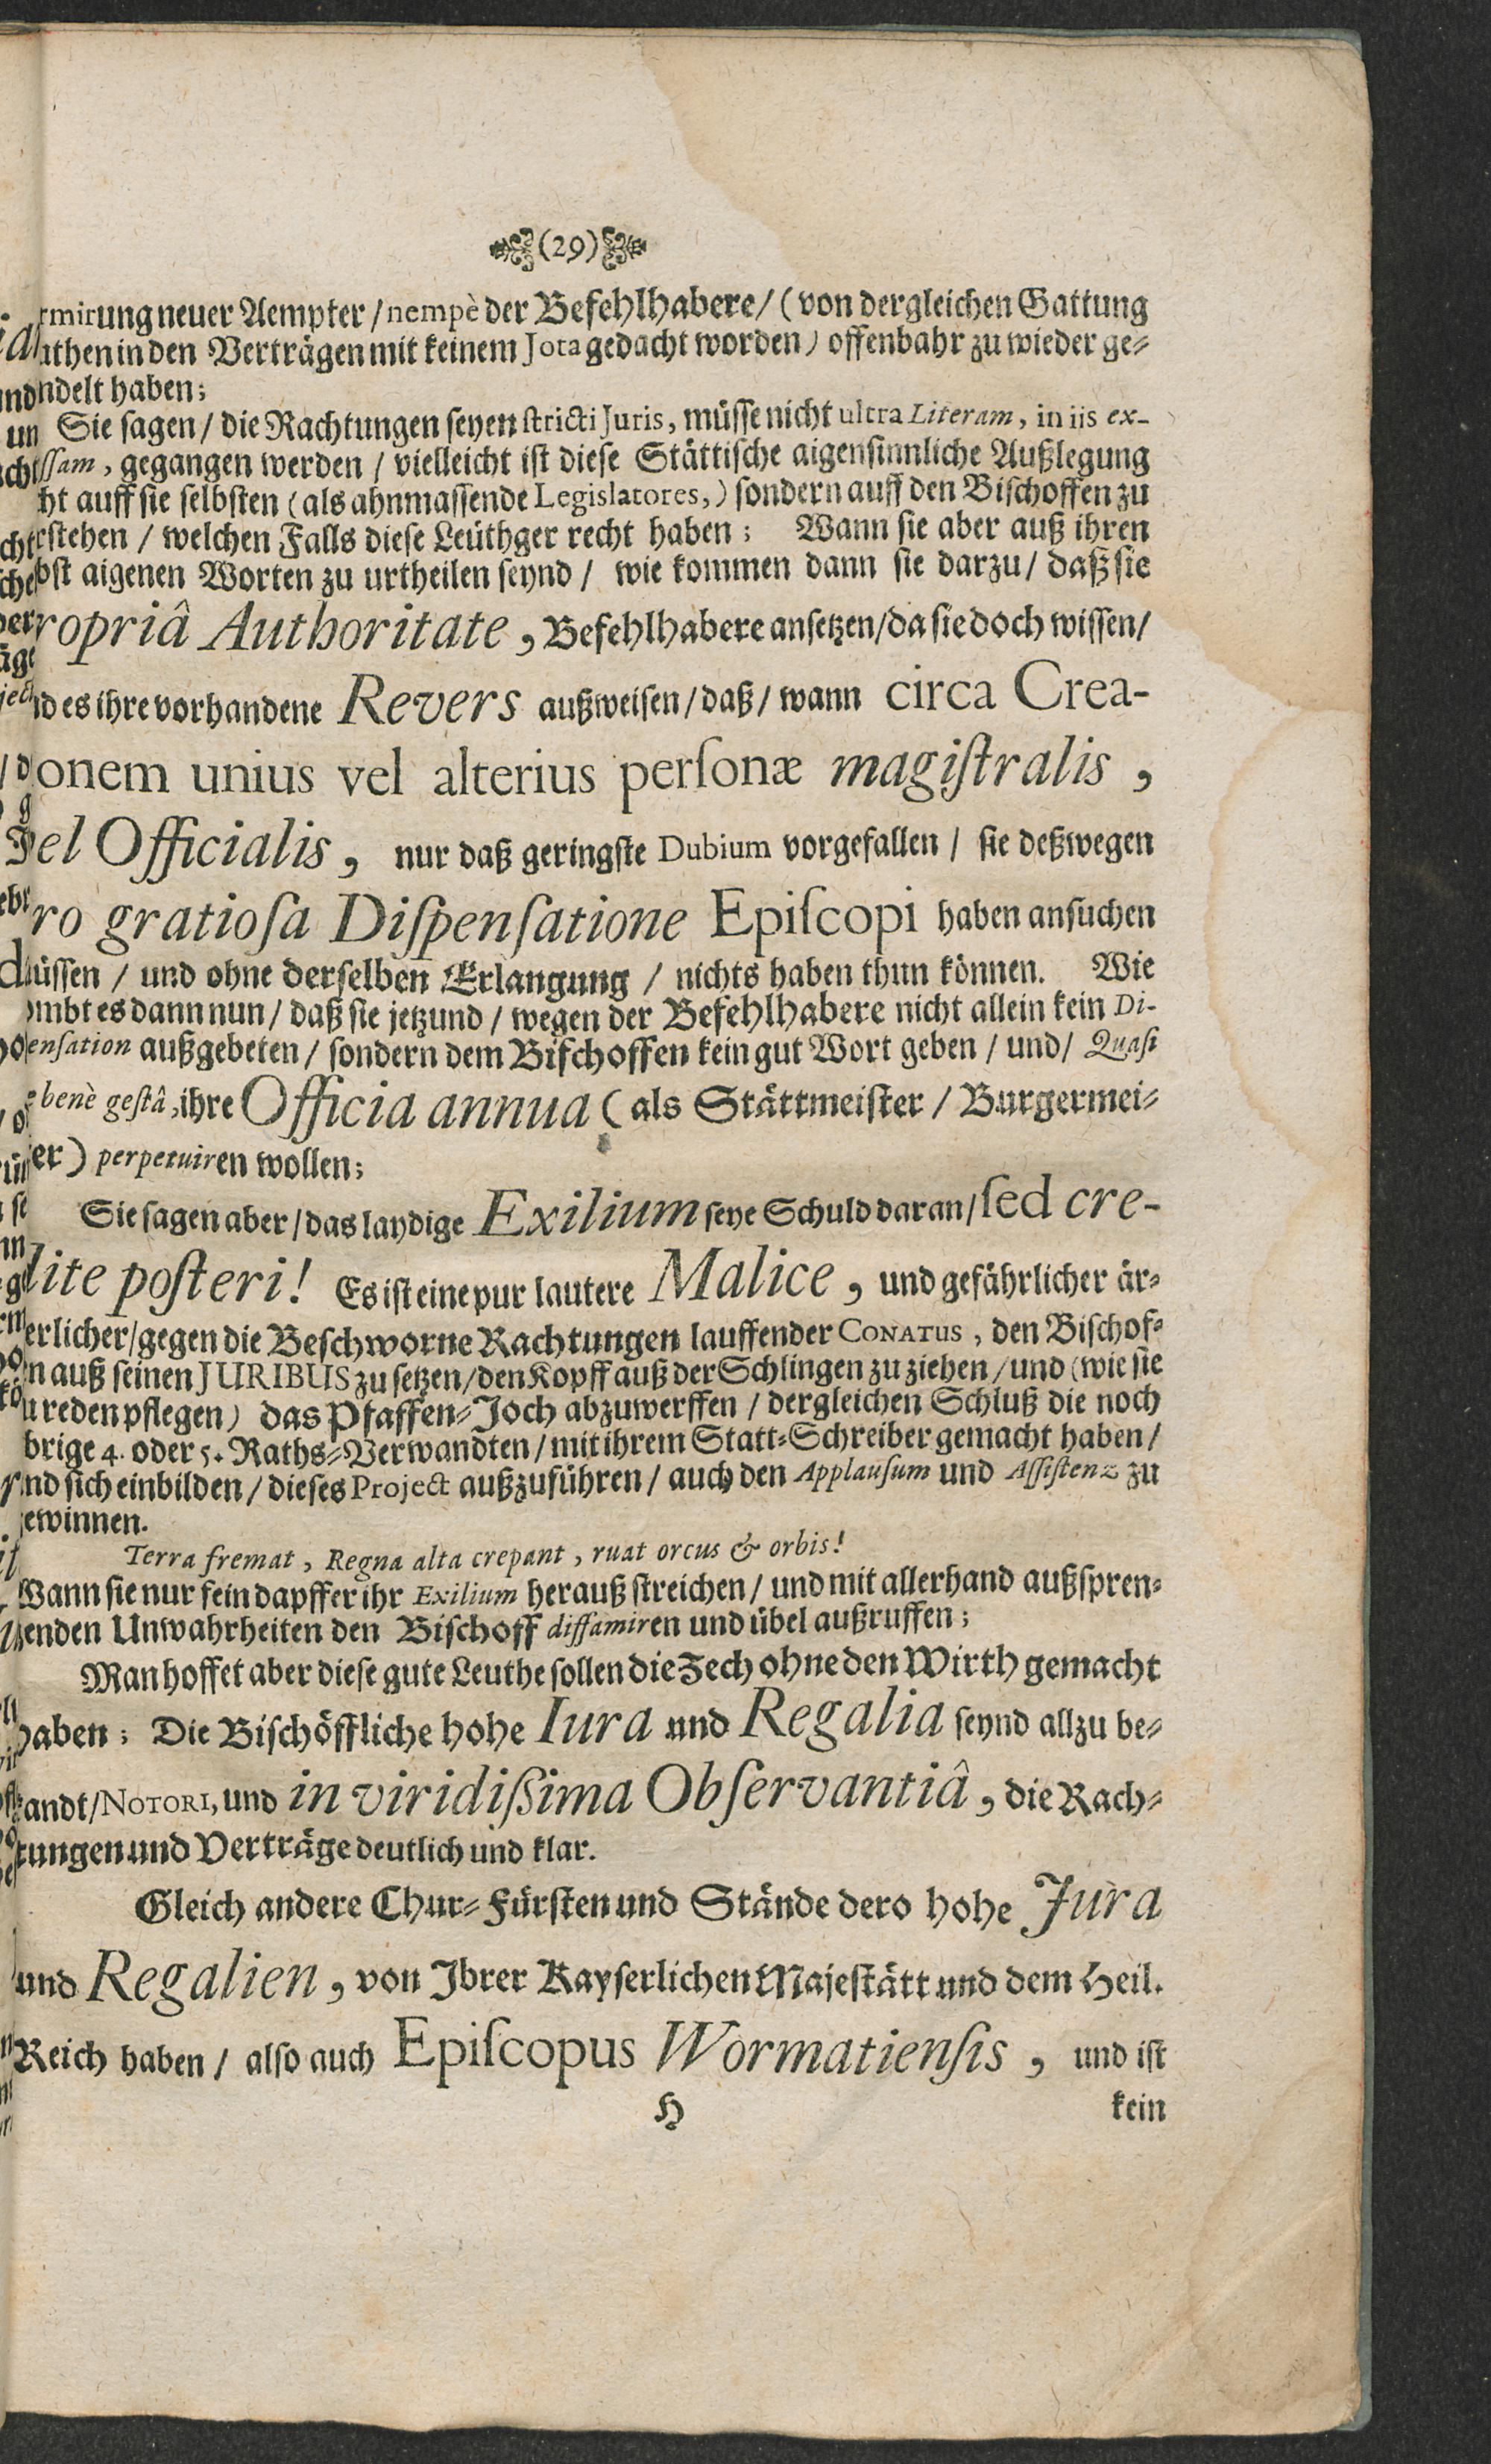 (29)
rmirung neuer Aempter / nempè der Befehlhabere / (von dergleichen Gattung
athen in den Verträgen mit keinem Jota gedacht worden) offenbahr zu wieder ge-
ndelt haben;
Sie sagen / die Rachtungen seyen stricti Juris, müsse nicht ultra Literam, in iis ex-
ssam, gegangen werden / vielleicht ist diese Stättische aigensinnliche Außlegung
ht auff sie selbsten (als ahnmassende Legislatores,) sondern auff den Bischoffen zu
rstehen / welchen Falls diese Leüthger recht haben; Wann sie aber auß ihren
bst aigenen Worten zu urtheilen seynd / wie kommen dann sie darzu / daß sie
ropriâ Authoritate, Befehlhabere ansetzen / da sie doch wissen /
d es ihre vorhandene Revers außweisen / daß / wann circa Crea-
onem unius vel alterius personæ magistralis,
el Officialis, nur daß geringste Dubium vorgefallen / sie deßwegen
ro gratiosa Dispensatione Episcopi haben ansuchen
üssen / und ohne derselben Erlangung / nichts haben thun können. Wie
ombt es dann nun / daß sie jetzund / wegen der Befehlhabere nicht allein kein Di-
ensation außgebeten / sondern dem Bischoffen kein gut Wort geben / und / Quasi
benè gestâ, ihre Officia annua (als Stättmeister / Burgermei-
er) perpetuiren wollen;
Sie sagen aber / das laydige Exilium seye Schuld daran / sed cre-
dite posteri! Es ist eine pur lautere Malice, und gefährlicher är-
erlicher / gegen die Beschworne Rachtungen lauffender CONATUS, den Bischof-
n auß seinen JURIBUS zu setzen / den Kopff auß der Schlingen zu ziehen / und (wie sie
u reden pflegen) das Pfaffen-Joch abzuwerffen / dergleichen Schluß die noch
brige 4. oder 5. Raths-Verwandten / mit ihrem Statt-Schreiber gemacht haben /
nd sich einbilden / dieses Project außzuführen / auch den Applausum und Assistenz zu
ewinnen.
Terra fremat, Regna alta crepant, ruat orcus & orbis!
Wann sie nur fein dapffer ihr Exilium herauß streichen / und mit allerhand außspren-
enden Unwahrheiten den Bischoff diffamiren und übel außruffen;
Man hoffet aber diese gute Leuthe sollen die Zech ohne den Wirth gemacht
haben; Die Bischöffliche hohe Iura und Regalia seynd allzu be-
kandt / NOTORI, und in viridißima Observantiâ, die Rach-
tungen und Verträge deutlich und klar.
Gleich andere Chur-Fürsten und Stände dero hohe Jura
und Regalien, von Ihrer Kayserlichen Majestätt und dem Heil.
Reich haben / also auch Episcopus Wormatiensis, und ist
H kein